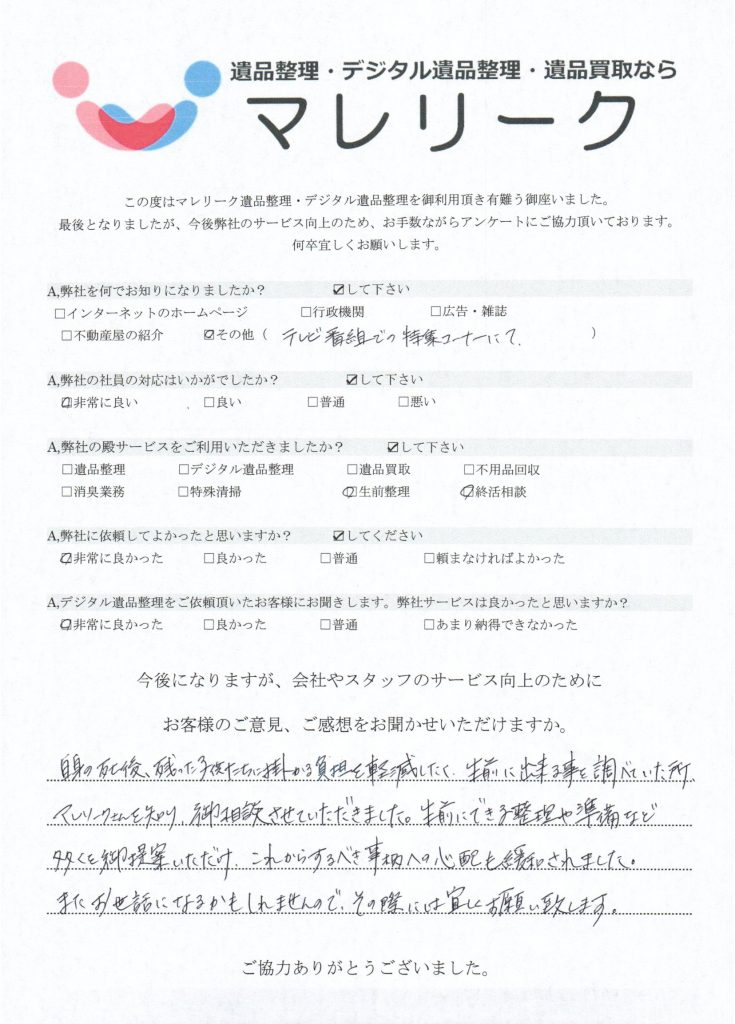 遺品整理・デジタル遺品整理・遺品買取なら
マレリーク
この度はマレリーク遺品整理・デジタル遺品整理を御利用頂き有難う御座いました。
最後となりましたが、今後弊社のサービス向上のため、お手数ながらアンケートにご協力頂いております。
何卒宜しくお願いします。
A,弊社を何でお知りになりましたか？ ☑して下さい
□インターネットのホームページ □行政機関 □広告・雑誌
□不動産屋の紹介 ☑その他（ テレビ番組での特集コーナーにて. ）
A,弊社の社員の対応はいかがでしたか？ ☑して下さい
☑非常に良い □良い □普通 □悪い
A,弊社の殿サービスをご利用いただきましたか？ ☑して下さい
□遺品整理 □デジタル遺品整理 □遺品買取 □不用品回収
□消臭業務 □特殊清掃 ☑生前整理 ☑終活相談
A,弊社に依頼してよかったと思いますか？ ☑してください
☑非常に良かった □良かった □普通 □頼まなければよかった
A,デジタル遺品整理をご依頼頂いたお客様にお聞きします。弊社サービスは良かったと思いますか？
☑非常に良かった □良かった □普通 □あまり納得できなかった
今後になりますが、会社やスタッフのサービス向上のために
お客様のご意見、ご感想をお聞かせいただけますか。
自身の死後、残った子供たちに掛かる負担を軽減したく、生前に出来る事を調べていた所、
マレリークさんを知り、御相談させていただきました。生前にできる整理や準備など
多くを御提案いただけ、これからするべき事柄への心配も緩和されました。
またお世話になるかもしれませんので、その際には宜しくお願い致します。
ご協力ありがとうございました。